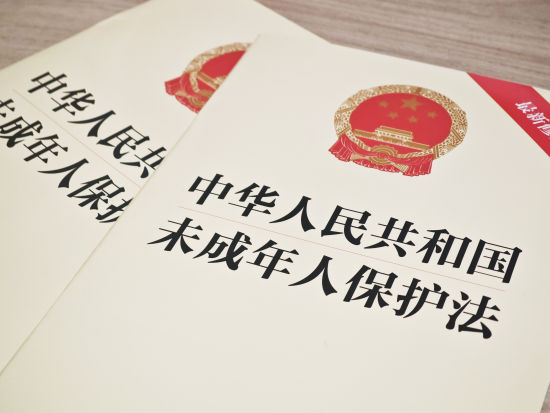 中华人民共
未成年人保护
最新修
中华人民共和国
未成年人保护法